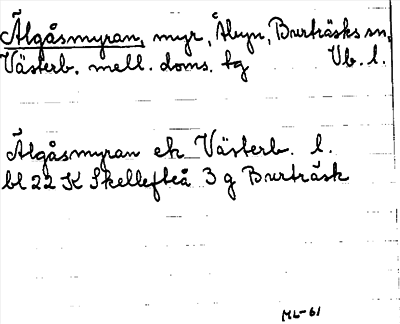 Älgåsmyran, myr, Åbyn, Burträsks sn,
Västerb. mell. doms. tg Vb. l.
Älgåsmyran ek Västerb. l.
bl 22 K Skellefteå 3 g Burträsk
ML-61